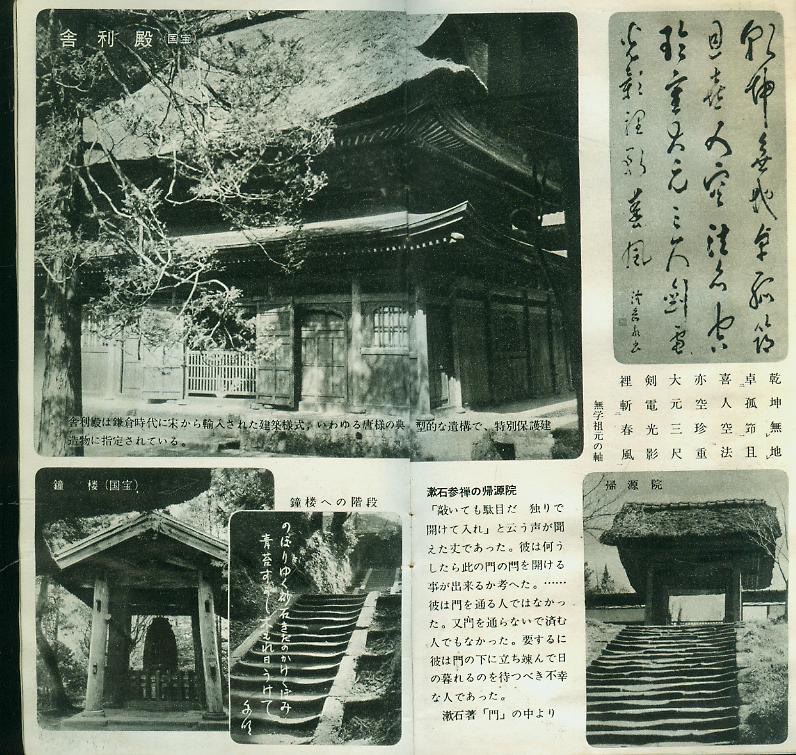 舎利殿(国宝)
舎利殿は鎌倉時代に宋から輸入された建築様式、いわゆる唐様の典型的な遺構で、特別保護建
造物に指定されている。
乾坤無地卓孤筇
且喜人空法亦空
珍重大元三尺剣電
光影裡斬春風
乾坤無地
卓孤筇且
喜人空法
亦空珍重
大元三尺
剣電光影
裡斬春風
無学祖元の軸
鐘楼(国宝)
鐘楼への階段
のぼりゆく
青苔
れ日うけて
漱石参禅の帰源院
「敲いても駄目だ 独りで
開けて入れ」と云う声が聞
えた丈であった。彼は何う
したら此の門の閂を開ける
事が出来るか考へた。……
彼は門を通る人ではなかっ
た。又門を通らないで済む
人でもなかった。要するに
彼は門の下に立ち竦んで日
の暮れるのを待つべき不幸
な人であった。
漱石著「門」の中より
帰源院